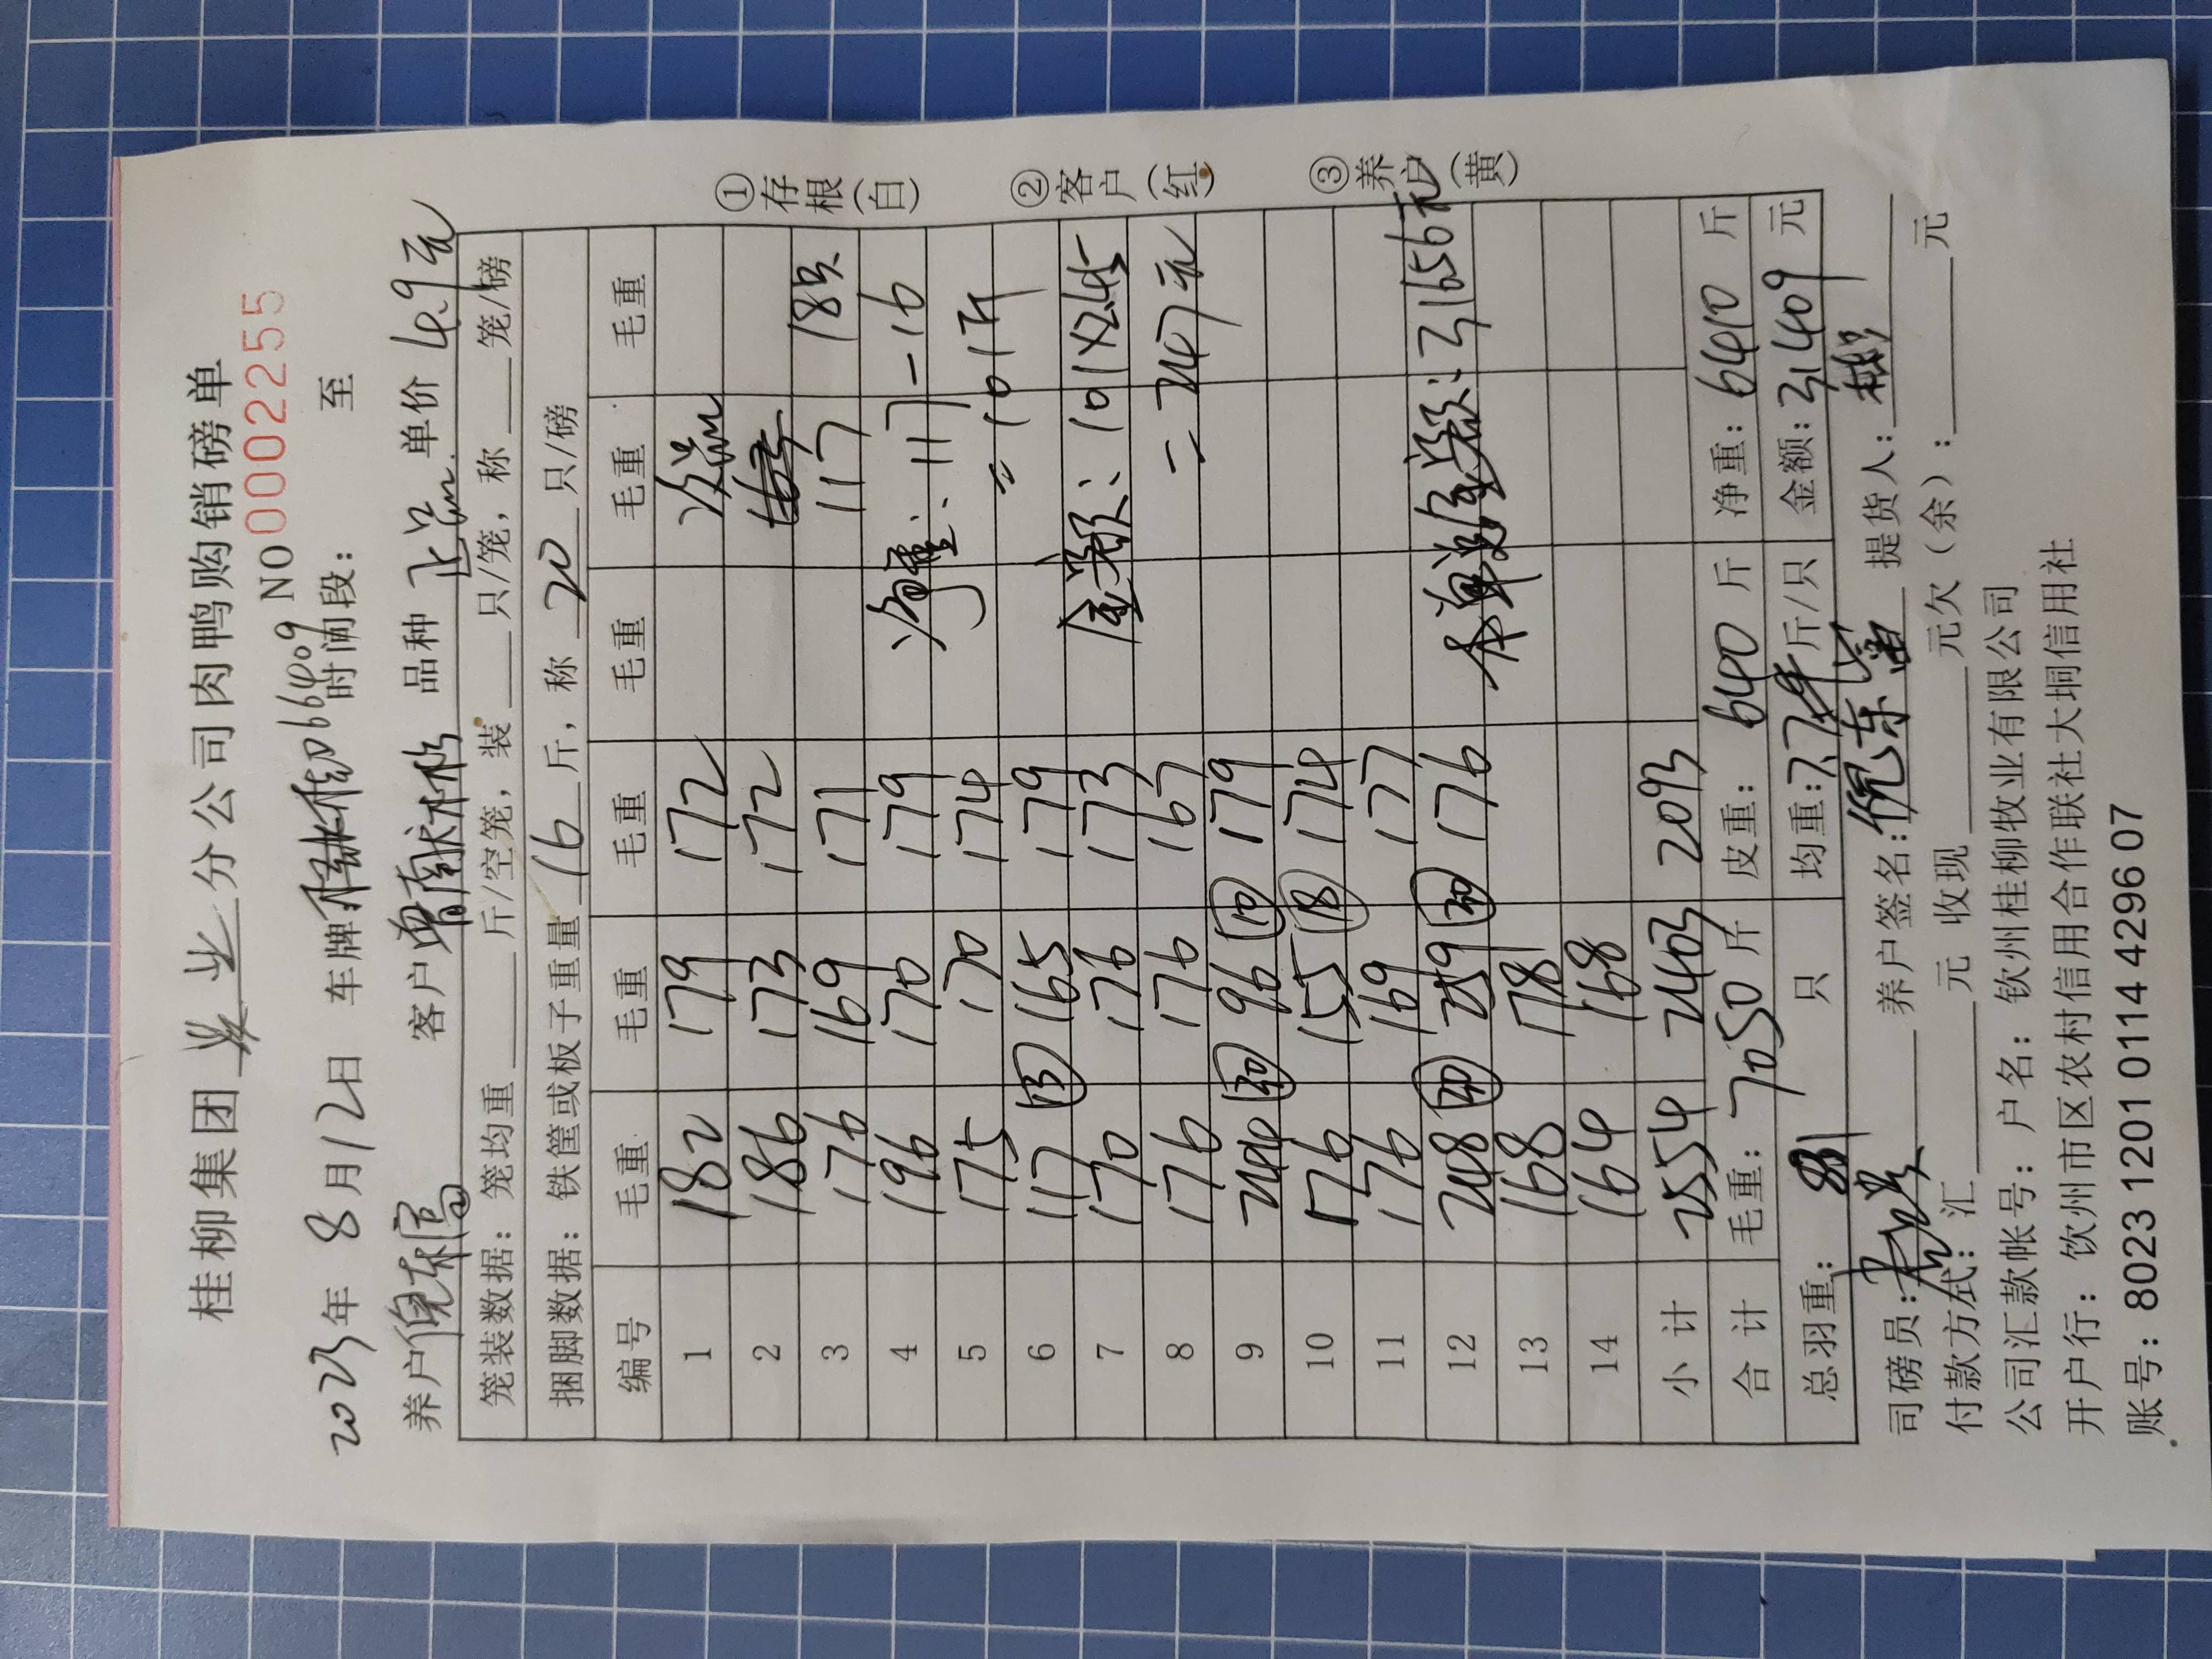 桂柳集团 业 分公司肉鸭购销磅单
NO 0002255
2023年 8月12日 车牌 桂D66409 时间段： 至
养户 倪东富 客户 曾献林 品种 正品 单价 4.9元
笼装数据：笼均重 斤/空笼，装 只/笼，称 笼/磅
捆脚数据：铁筐或板子重量 16 斤，称 20 只/磅
编号 毛重 毛重 毛重 毛重 毛重 毛重
1 182 179 172 次品
2 186 173 172
3 176 169 171 117 18只
4 196 170 179 净重：117-16
5 175 170 174 =101斤
6 117 (13) 165 179
7 170 176 173 金额：101×2.45
8 176 176 167 =247元
9 244 (30) 96 (10) 179
10 176 155 (18) 174
11 176 169 177
12 248 (30) 259 (30) 176 本单总金额：31656元
13 168 178
14 164 168
小计 2554 2403 2093
合计 毛重：7050 斤 皮重：640 斤 净重：6410 斤
总羽重：831 只 均重：7.7 斤/只 金额：31409 元
司磅员： 养户签名：倪东富 提货人：
付款方式：汇 元 收现 元欠（余）： 元
公司汇款帐号：户名：钦州桂柳牧业有限公司
开户行：饮州市区农村信用合作联社大垌信用社
账号：8023 1201 0114 4296 07
①存根（白）
②客户（红）
③养户（黄）